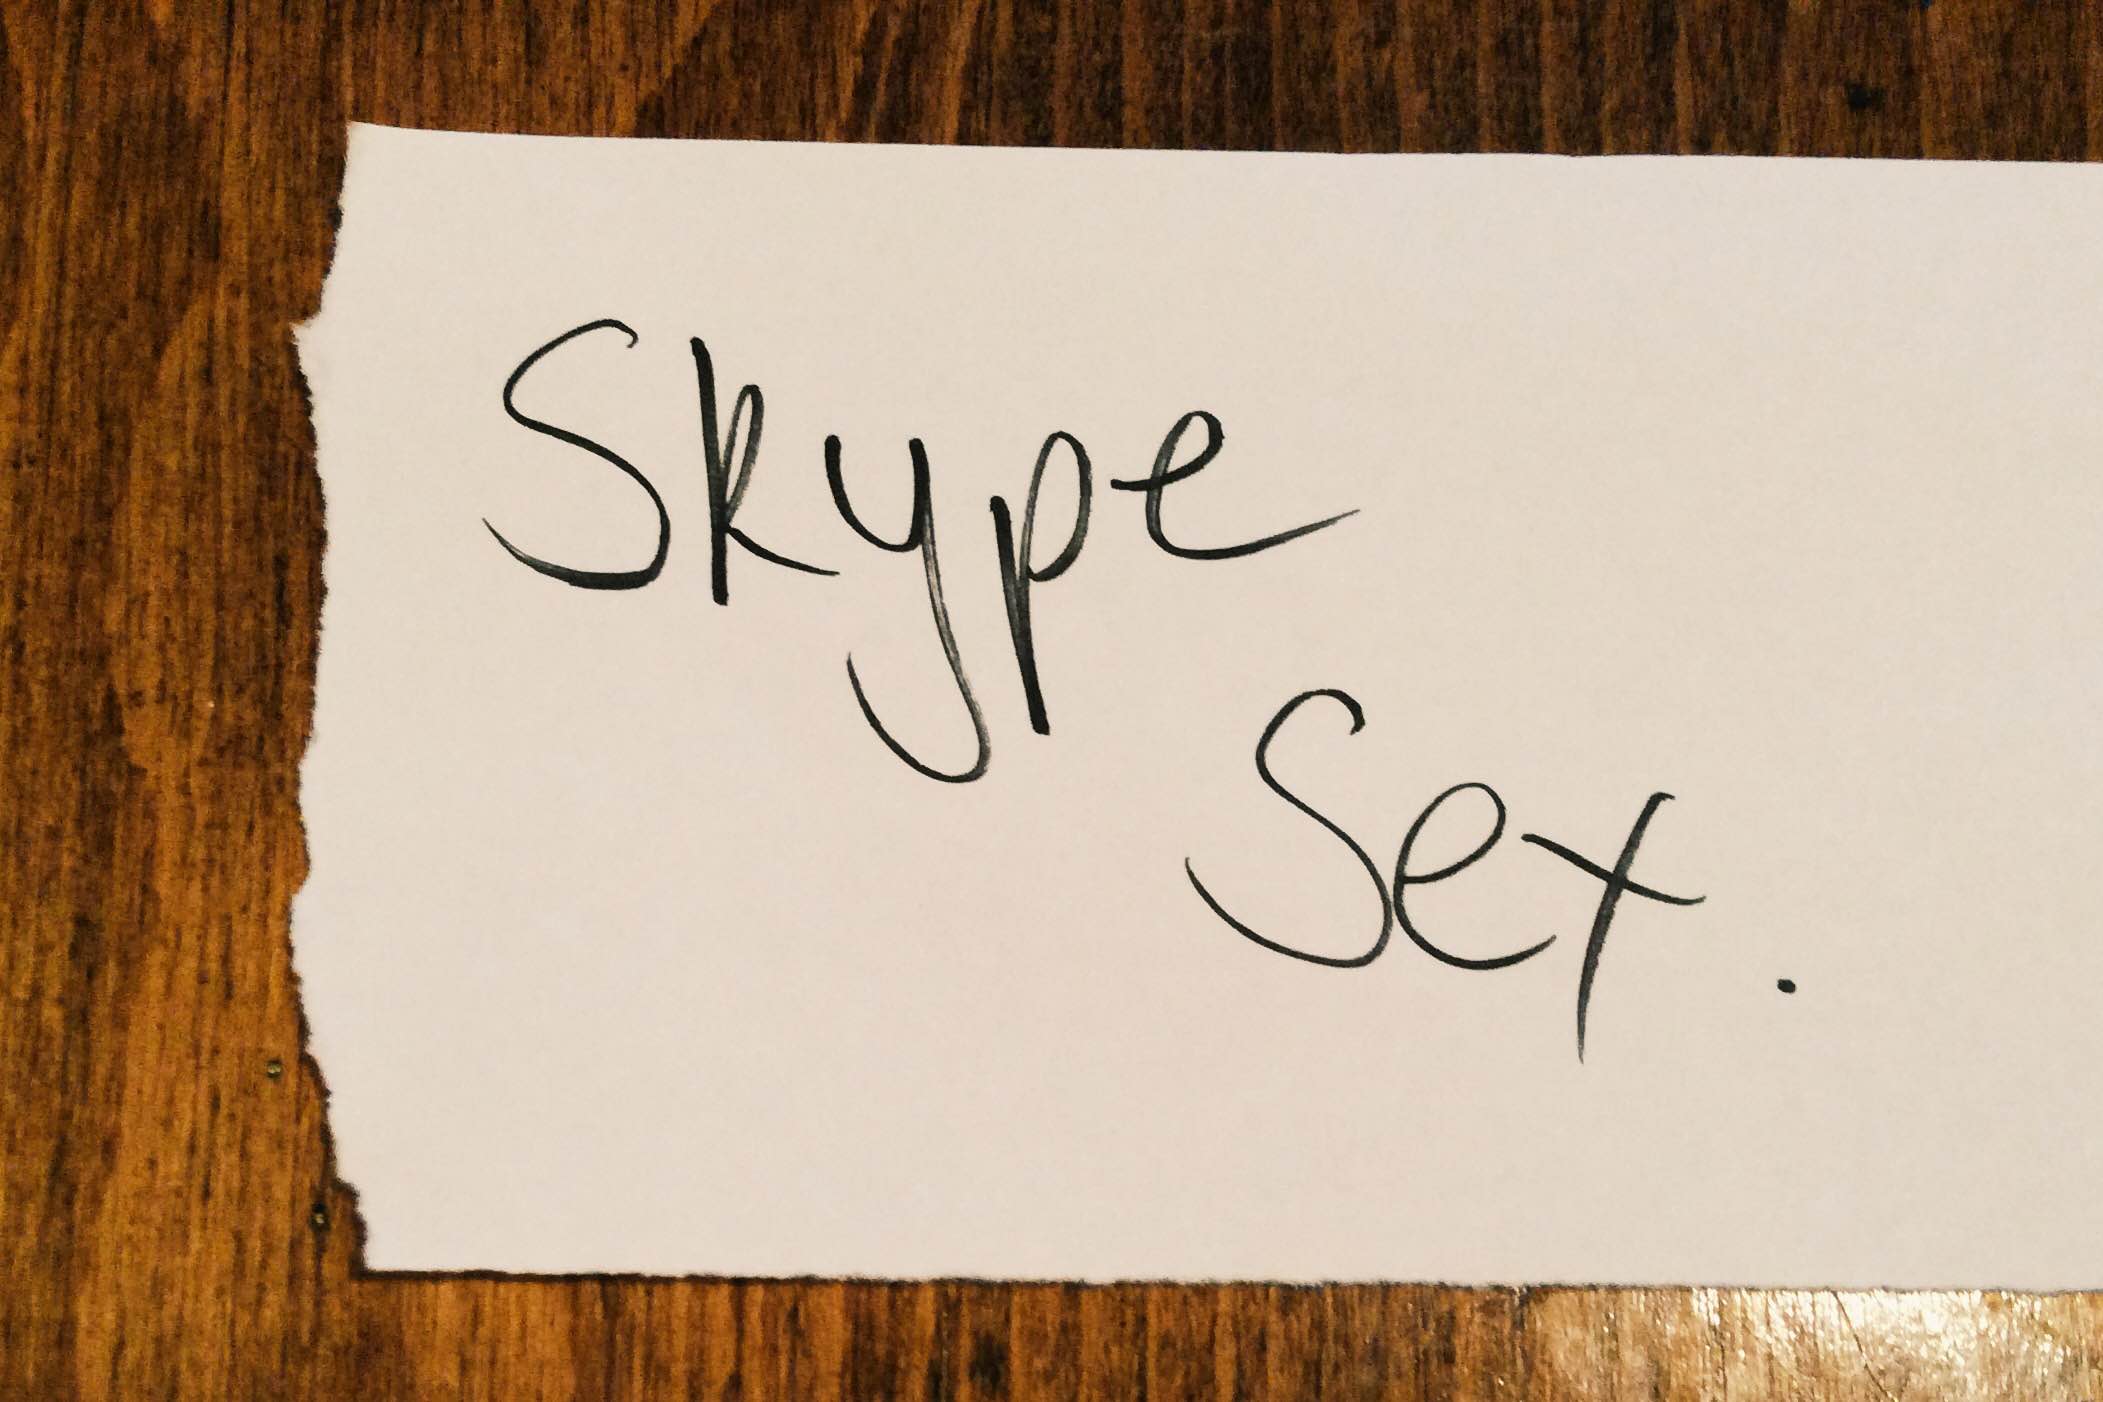 Skype
Sex.